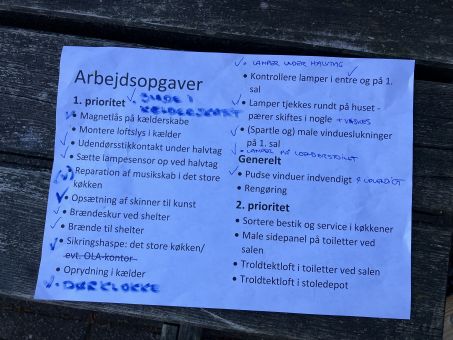 Arbejdsopgaver
1. prioritet
Magnetlås på kælderskabe
• Montere loftslys i kælder
• Udendørsstikkontakt under halvtag
• Sætte lampesensor op ved halvtag
• Reparation af musikskab i det store
køkken
• Opsætning af skinner til kunst
• Brændeskur ved shelter
• Brænde til shelter
• Sikringshaspe: det store køkken/
evt. OLA-kontor
• Oprydning i kælder
DØRKLOKKE
• LAMPER UNDER HALVTAG
• Kontrollere lamper i entre og på 1.
sal
• Lamper tjekkes rundt på huset -
pærer skiftes i nogle + VASKES
• (Spartle og) male vindueslukninger
på 1. sal
Generelt
• Pudse vinduer indvendigt
• Rengøring
2. prioritet
• Sortere bestik og service i køkkener
• Male sidepanel på toiletter ved
salen
• Troldtektloft i toiletter ved salen
• Troldtektloft i stoledepot